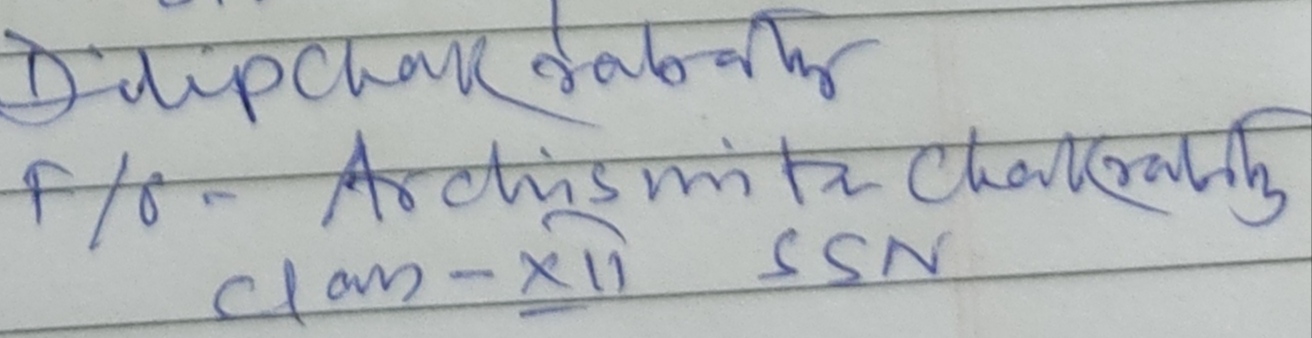 Dilip Chakrabarty
F/o - Archismita Chakrabarty
Class - XII SSN